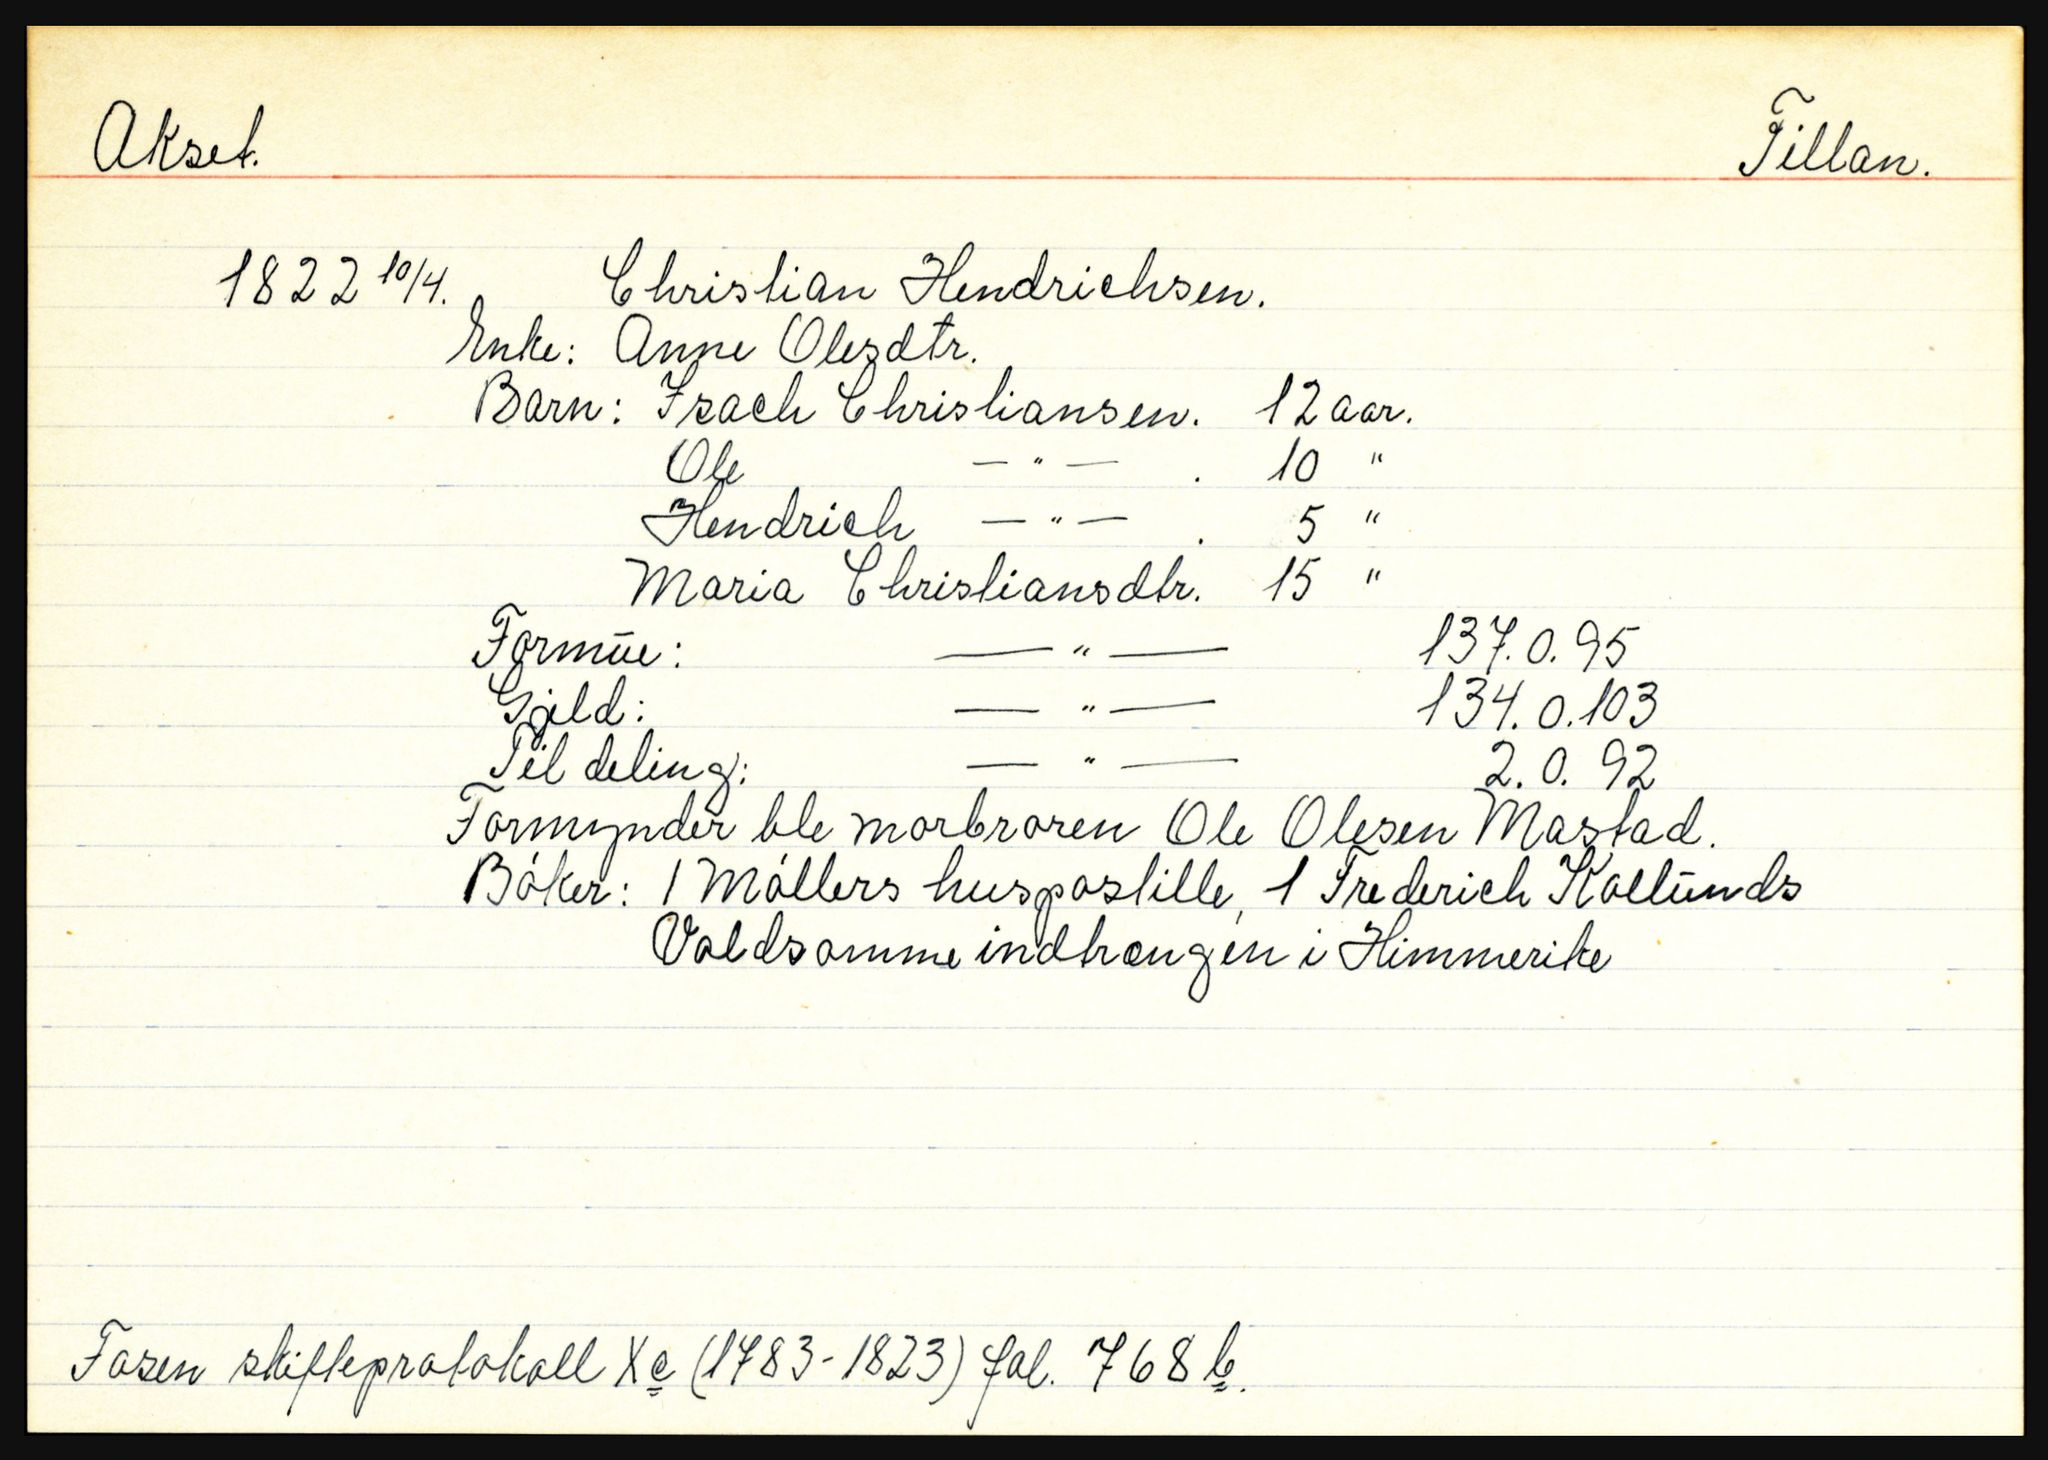 Akset. Fillan.
1822 10/4. Christian Hendrichsen.
Enke: Anne Olesdtr.
Barn: Isach Christiansen. 12 aar.
Ole — " — . 10 "
Hendrich — " — . 5 "
Maria Christiansdtr. 15 "
Formūe: — " — 137. 0. 95
Gjeld: — " — 134. 0. 103
Til deling: — " — 2. 0. 92
Formynder ble morbroren Ole Olesen Mastad.
Bóker: 1 Móllers huspostille, 1 Frederich Kollūnds
Voldsomme indtrængen i Himmerike
Fosen skifteprotokoll Xc (1783-1823) fol. 768 b.